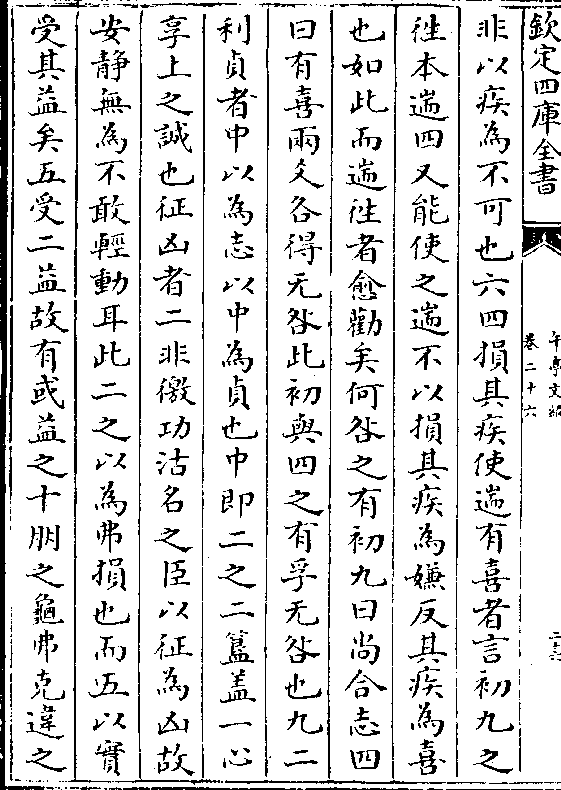 欽定四庫全書
卷二十六
非以疾為不可也六四損其疾使遄有喜者言初九之
徃本遄四又能使之遄不以損其疾為嫌反其疾為喜
也如此而遄徃者愈勸矣何咎之有初九曰尚合志四
曰有喜兩爻各得无咎此初與四之有孚无咎也九二
利貞者中以為志以中為貞也中即二之二簋盖一心
享上之誠也征凶者二非徼功沽名之臣以征為凶故
安静無為不敢輕動耳此二之以為弗損也而五以實
受其益矣五受二益故有或益之十朋之龜弗克違之